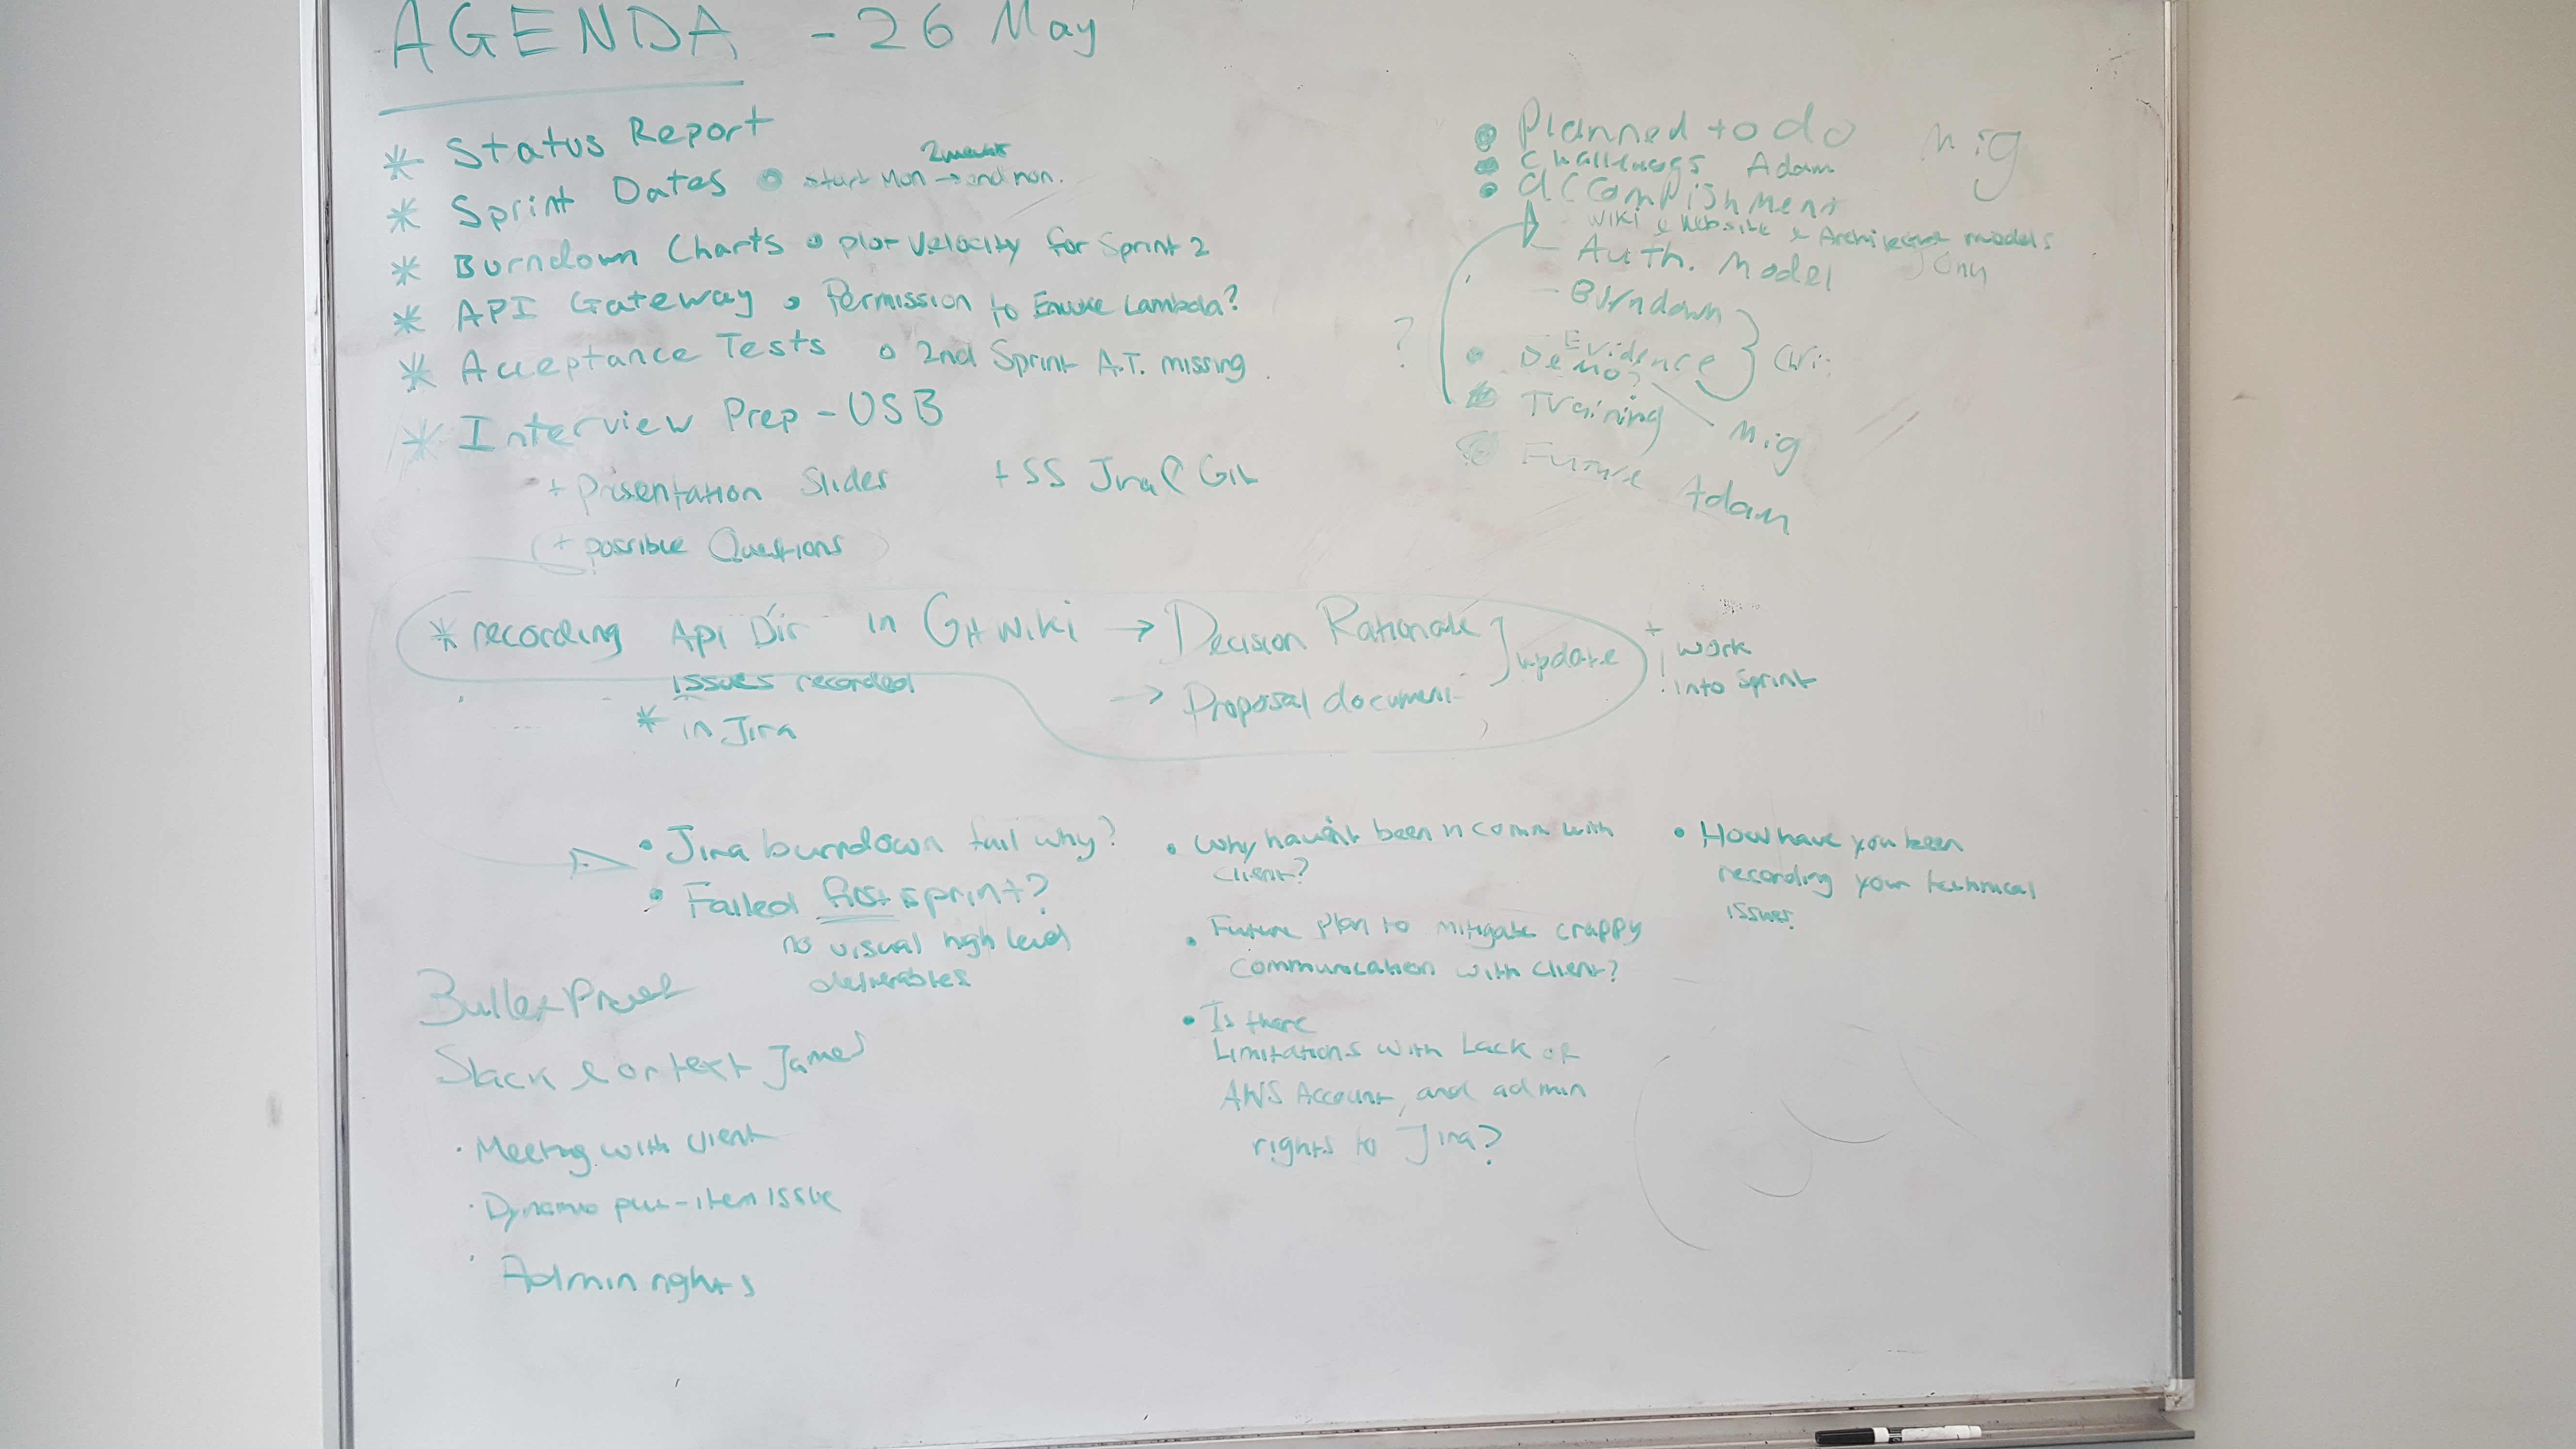 AGENDA - 26 May
* Status Report
* Sprint Dates start Mon → end mon.
* Burndown Charts plot Velocity for Sprint 2
* API Gateway Permission to Lambda?
* Acceptance Tests 2nd Sprint A.T. missing
* Interview Prep - USB
+ Presentation Slides + SS Jira Git
+ possible Questions
Planned to do Mig
Challenges Adam
accomplishment
- Wiki & Website & Architecture models
- Auth. Model
- Burndown
- Evidence
Demo?
Training Mig
Future Adam
?
* recording Api Dir in Git Wiki → Decision Rationale
→ Proposal document
update
+ work
into Sprint
issues recorded
* in Jira
• Jira burndown fail why?
• Failed first sprint?
no visual high level
deliverables
• Why haven't been in comm with
client?
• Future plan to mitigate crappy
communication with client?
• Is there
Limitations with Lack of
AWS Account, and admin
rights to Jira?
• How have you been
recording your technical
issues
Bullet Proof
Slack James
• Meeting with client
• Dynamo put-item issue
• Admin rights